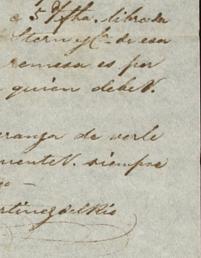 a 5 d/fha. librada
Stern y Ca. de esa
remesa es por
quien debe V.
eranza de verle
mente V. siempre
go
rtinez del Rio